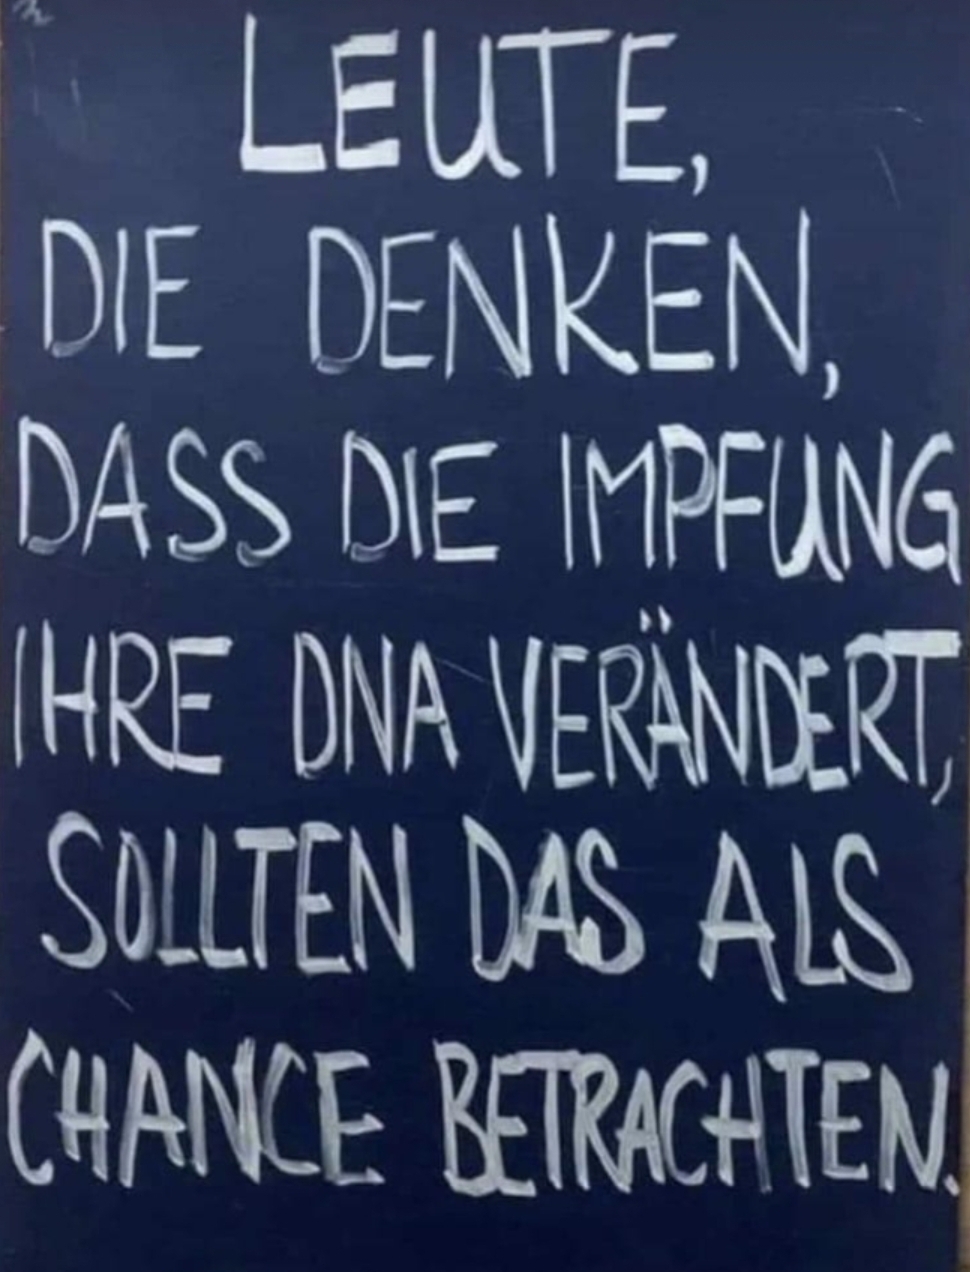 LEUTE,
DIE DENKEN,
DASS DIE IMPFUNG
IHRE DNA VERÄNDERT,
SOLLTEN DAS ALS
CHANCE BETRACHTEN.